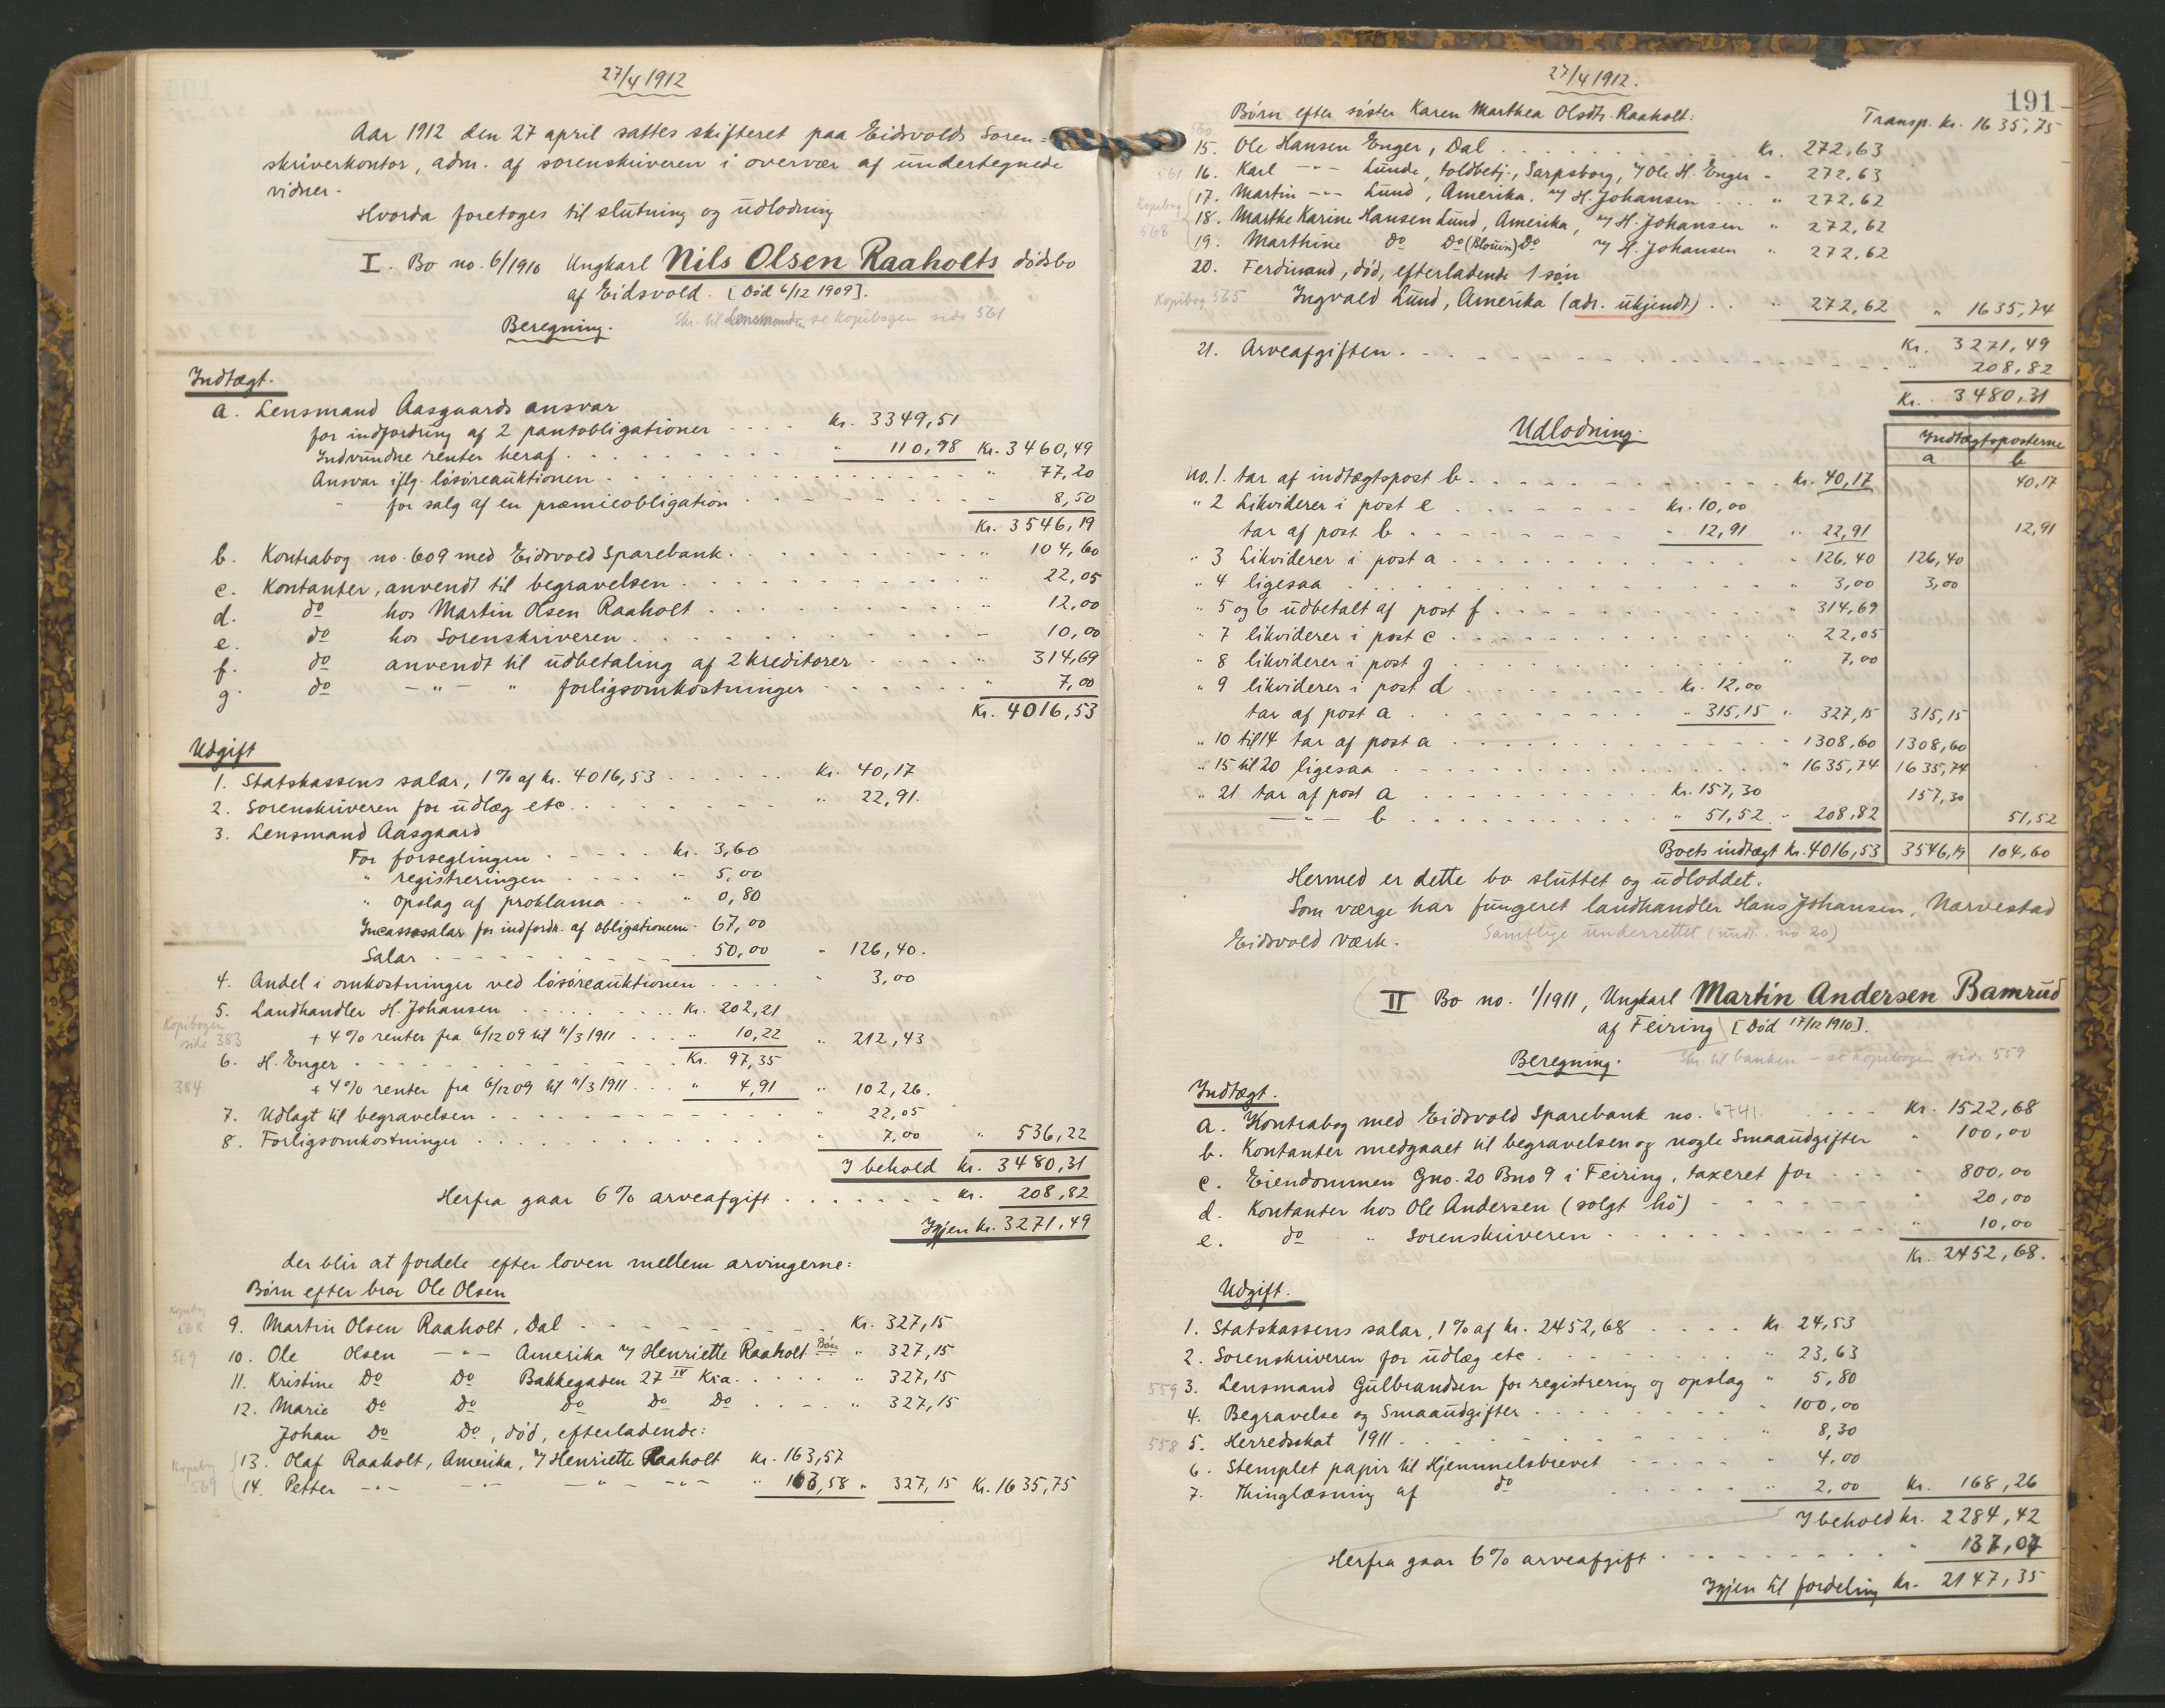 27/4 1912
Aar 1912 den 27 april sattes skifteret paa Eidsvolds Soren=
skriverkontor, adm. af sorenskriveren i overvær af undertegnede
vidner.
Hvorda foretoges til slutning og udlodning
I. Bo no. 6/1910 Ungkarl Nils Olsen Raaholts dødsbo
af Eidsvold. [Død 6/12 1909].
Beregning. Skr. til Lensmanden se kopibogen side 561
Indtægt.
a. Lensmand Aasgaards ansvar
for indfordring af 2 pantobligationer . . . . kr. 3349,51
Indvundne renter heraf . . . . " 110,98 Kr. 3460,49
Ansvar iflg. løsøreauktionen . . . . " 77,20
- for salg af en præmieobligation . . . . - 8,50
Kr. 3546,19
b. Kontrabog no. 609 med Eidsvold Sparebank . . . . " 104,60
c. Kontanter, anvendt til begravelsen . . . . " 22,05
d. do hos Martin Olsen Raaholt . . . . " 12,00
e. do hos Sorenskriveren . . . . - 10,00
f. do anvendt til udbetaling af 2 kreditorer . . . . " 314,69
g. do -"- " forligsomkostninger . . . . " 7,00
Kr. 4016,53
Udgift
1. Statskassens salar, 1% af kr. 4016,53 . . . . Kr. 40,17
2. Sorenskriveren for udlæg etc. . . . . " 22,91.
3. Lensmand Aasgaard
For forseglingen . . . . kr. 3,60
" registreringen . . . . " 5,00
" opslag af proklama . . " 0,80
Incassosalar for indfordr. af obligationerne - 67,00
Salar . . . . - 50,00 " 126,40.
4. Andel i omkostninger ved løsøreauktionen . . . . " 3,00
5. Landhandler H. Johansen . . . . Kr. 202,21
Kopibogen side 383 + 4% renter fra 6/12 09 til 11/3 1911 . . . " 10,22 " 212,43
6. H. Enger . . . . Kr. 97,35
384 + 4% renter fra 6/12 09 til 11/3 1911 . . . " 4,91 " 102,26.
7. Udlagt til begravelsen . . . . " 22,05
8. Forligsomkostninger . . . . " 7,00 " 536,22
I behold kr. 3480,31
Herfra gaar 6% arveafgift . . . . kr. 208,82
Igjen kr. 3271,49
der blir at fordele efter loven mellem arvingerne:
Børn efter bror Ole Olsen
Kopibog 568 9. Martin Olsen Raaholt, Dal . . . . Kr. 327,15
569 10. Ole Olsen -"- Amerika v/ Henriette Raaholt Bøn " 327,15
11. Kristine Do Do Bakkegaden 27 IV Kra. . . . . " 327,15
12. Marie Do Do Do Do Do . . . . " 327,15
Johan Do Do, død, efterladende:
Kopibog 13. Olaf Raaholt, Amerika, v/ Henriette Raaholt kr. 163,57
569 14. Petter -"- -"- -"- -"- " 163,58 " 327,15 Kr. 1635,75
27/4 1912.
191
Børn efter søster Karen Marthea Olsdtr. Raaholt: Transp. Kr. 1635,75
560 15. Ole Hansen Enger, Dal . . . . Kr. 272,63
561 16. Karl -"- Lunde, toldbetj., Sarpsborg, v/ Ole H. Enger - 272,63
Kopibog 17. Martin -"- Lund, Amerika. v/ H. Johansen . . . " 272,62
568 18. Marthe Karine Hansen Lund, Amerika, v/ H. Johansen " 272,62
19. Marthine do Do (Blouin) Do v/ H. Johansen " 272,62
20. Ferdinand, død, efterladende 1 søn
Kopibog 565 Ingvald Lund, Amerika (adr. ukjendt) . . " 272,62 " 1635,74
Kr. 3271,49
21. Arveafgiften . . . . " 208,82
Kr. 3480,31
Udlodning.
Indtægtsposterne
a b
No. 1. tar af indtægtspost b . . . . kr. 40,17 40,17
" 2 Likviderer i post e . . . . kr. 10,00
tar af post b . . . . - 12,91 " 22,91 12,91
" 3 Likviderer i post a . . . . " 126,40 126,40
" 4 ligesaa . . . . " 3,00 3,00
" 5 og 6 udbetalt af post f . . . . " 314,69
" 7 likviderer i post c . . . . " 22,05
" 8 likviderer i post g . . . . " 7,00
" 9 likviderer i post d . . . . kr. 12,00
tar af post a . . . . - 315,15 " 327,15 315,15
" 10 til 14 tar af post a . . . . - 1308,60 1308,60
" 15 til 20 ligesaa . . . . " 1635,74 1635,74
" 21 tar af post a . . . . kr. 157,30 157,30
-"- b . . . . " 51,52 - 208,82 51,52
Boets indtægt kr. 4016,53 3546,19 104,60
Hermed er dette bo sluttet og udloddet.
Som værge har fungeret landhandler Hans Johansen, Narvestad
Eidsvold værk. Samtlige underrettet (undt. no 20)
II Bo no. 1/1911, Ungkarl Martin Andersen Bamrud
af Feiring [Død 17/12 1910].
Beregning. Skr. til banken - se kopibogen side 559
Indtægt.
a. Kontrabog med Eidsvold Sparebank no. 6741. . . . . Kr. 1522,68
b. Kontanter medgaaet til begravelsen og nogle Smaaudgifter " 100,00
c. Eiendommen Gno. 20 Bno 9 i Feiring, taxeret for . . . - 800,00
d. Kontanter hos Ole Andersen (solgt hø) . . . . " 20,00
e. do " Sorenskriveren . . . . " 10,00
Kr. 2452,68.
Udgift.
1. Statskassens salar, 1% af kr. 2452,68 . . . . Kr. 24,53
2. Sorenskriveren for udlæg etc . . . . " 23,63
559 3. Lensmand Gulbrandsen for registrering og opslag " 5,80
4. Begravelse og Smaaudgifter . . . . - 100,00
558 5. Herredsskat 1911 . . . . " 8,30
6. Stemplet papir til Hjemmelsbrevet . . . . " 4,00
7. Thinglæsning af do . . . . " 2,00 Kr. 168,26
I behold kr. 2284,42
Herfra gaar 6% arveafgift . . . . " 137,07
Igjen til fordeling kr. 2147,35